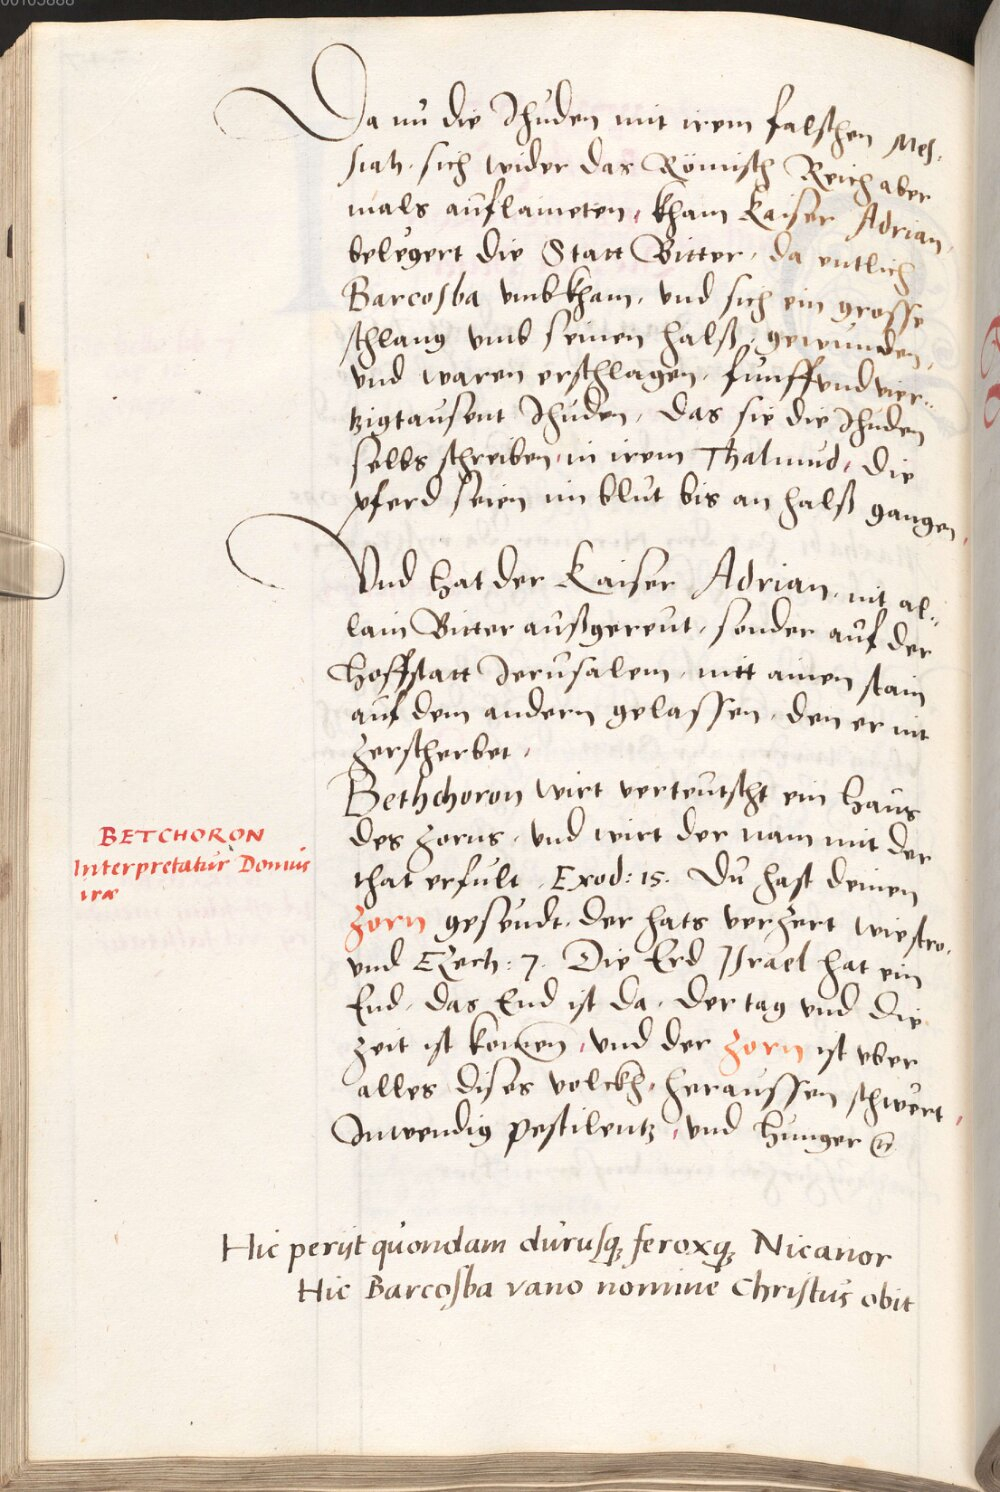 00105888
Da nů die Jhuden mit irem falschen Mes:
siah. sich wider das Römisch Reich aber
mals aufflaineten, kham Kaiser Adrian,
belegert die Statt Bitter, da entlich
Barcosba vmbkham, vnd sich ein grosse
schlang vmb seinen halß gewunden,
vnd waren erschlagen, funffvndvier„
tzigtausent Jhuden, Das sie die Jhuden
selbs schreiben, in irem Thalmud, die
pferd seien im blut bis an halß gangen,
Vnd hat der Kaiser Adrian, nit al„
lain Bitter außgereut, sonder auf der
hoffstatt Jerusalem, nitt ainen stain
auf dem andern gelassen, den er nit
zerscherbet,
Bethchoron wirt verteutscht ein haus
des zorns, vnd wirt der nam mit der
that erfult, Exod: 15. Du hast deinen
zorn gesendt, der hats verzert wie stro,
vnd Ezech: 7. Die Erd Israel hat ein
End, das End ist da, der tag vnd die
zeit ist komen, vnd der zorn ist vber
alles dises volckh, heraussen schwert,
Inwendig pestilentz, vnd hunger
BETCHORON
Interpretatur Domus
iræ
Hic perijt quondam durusq, feroxq, Nicanor
Hic Barcosba vano nomine Christus obit